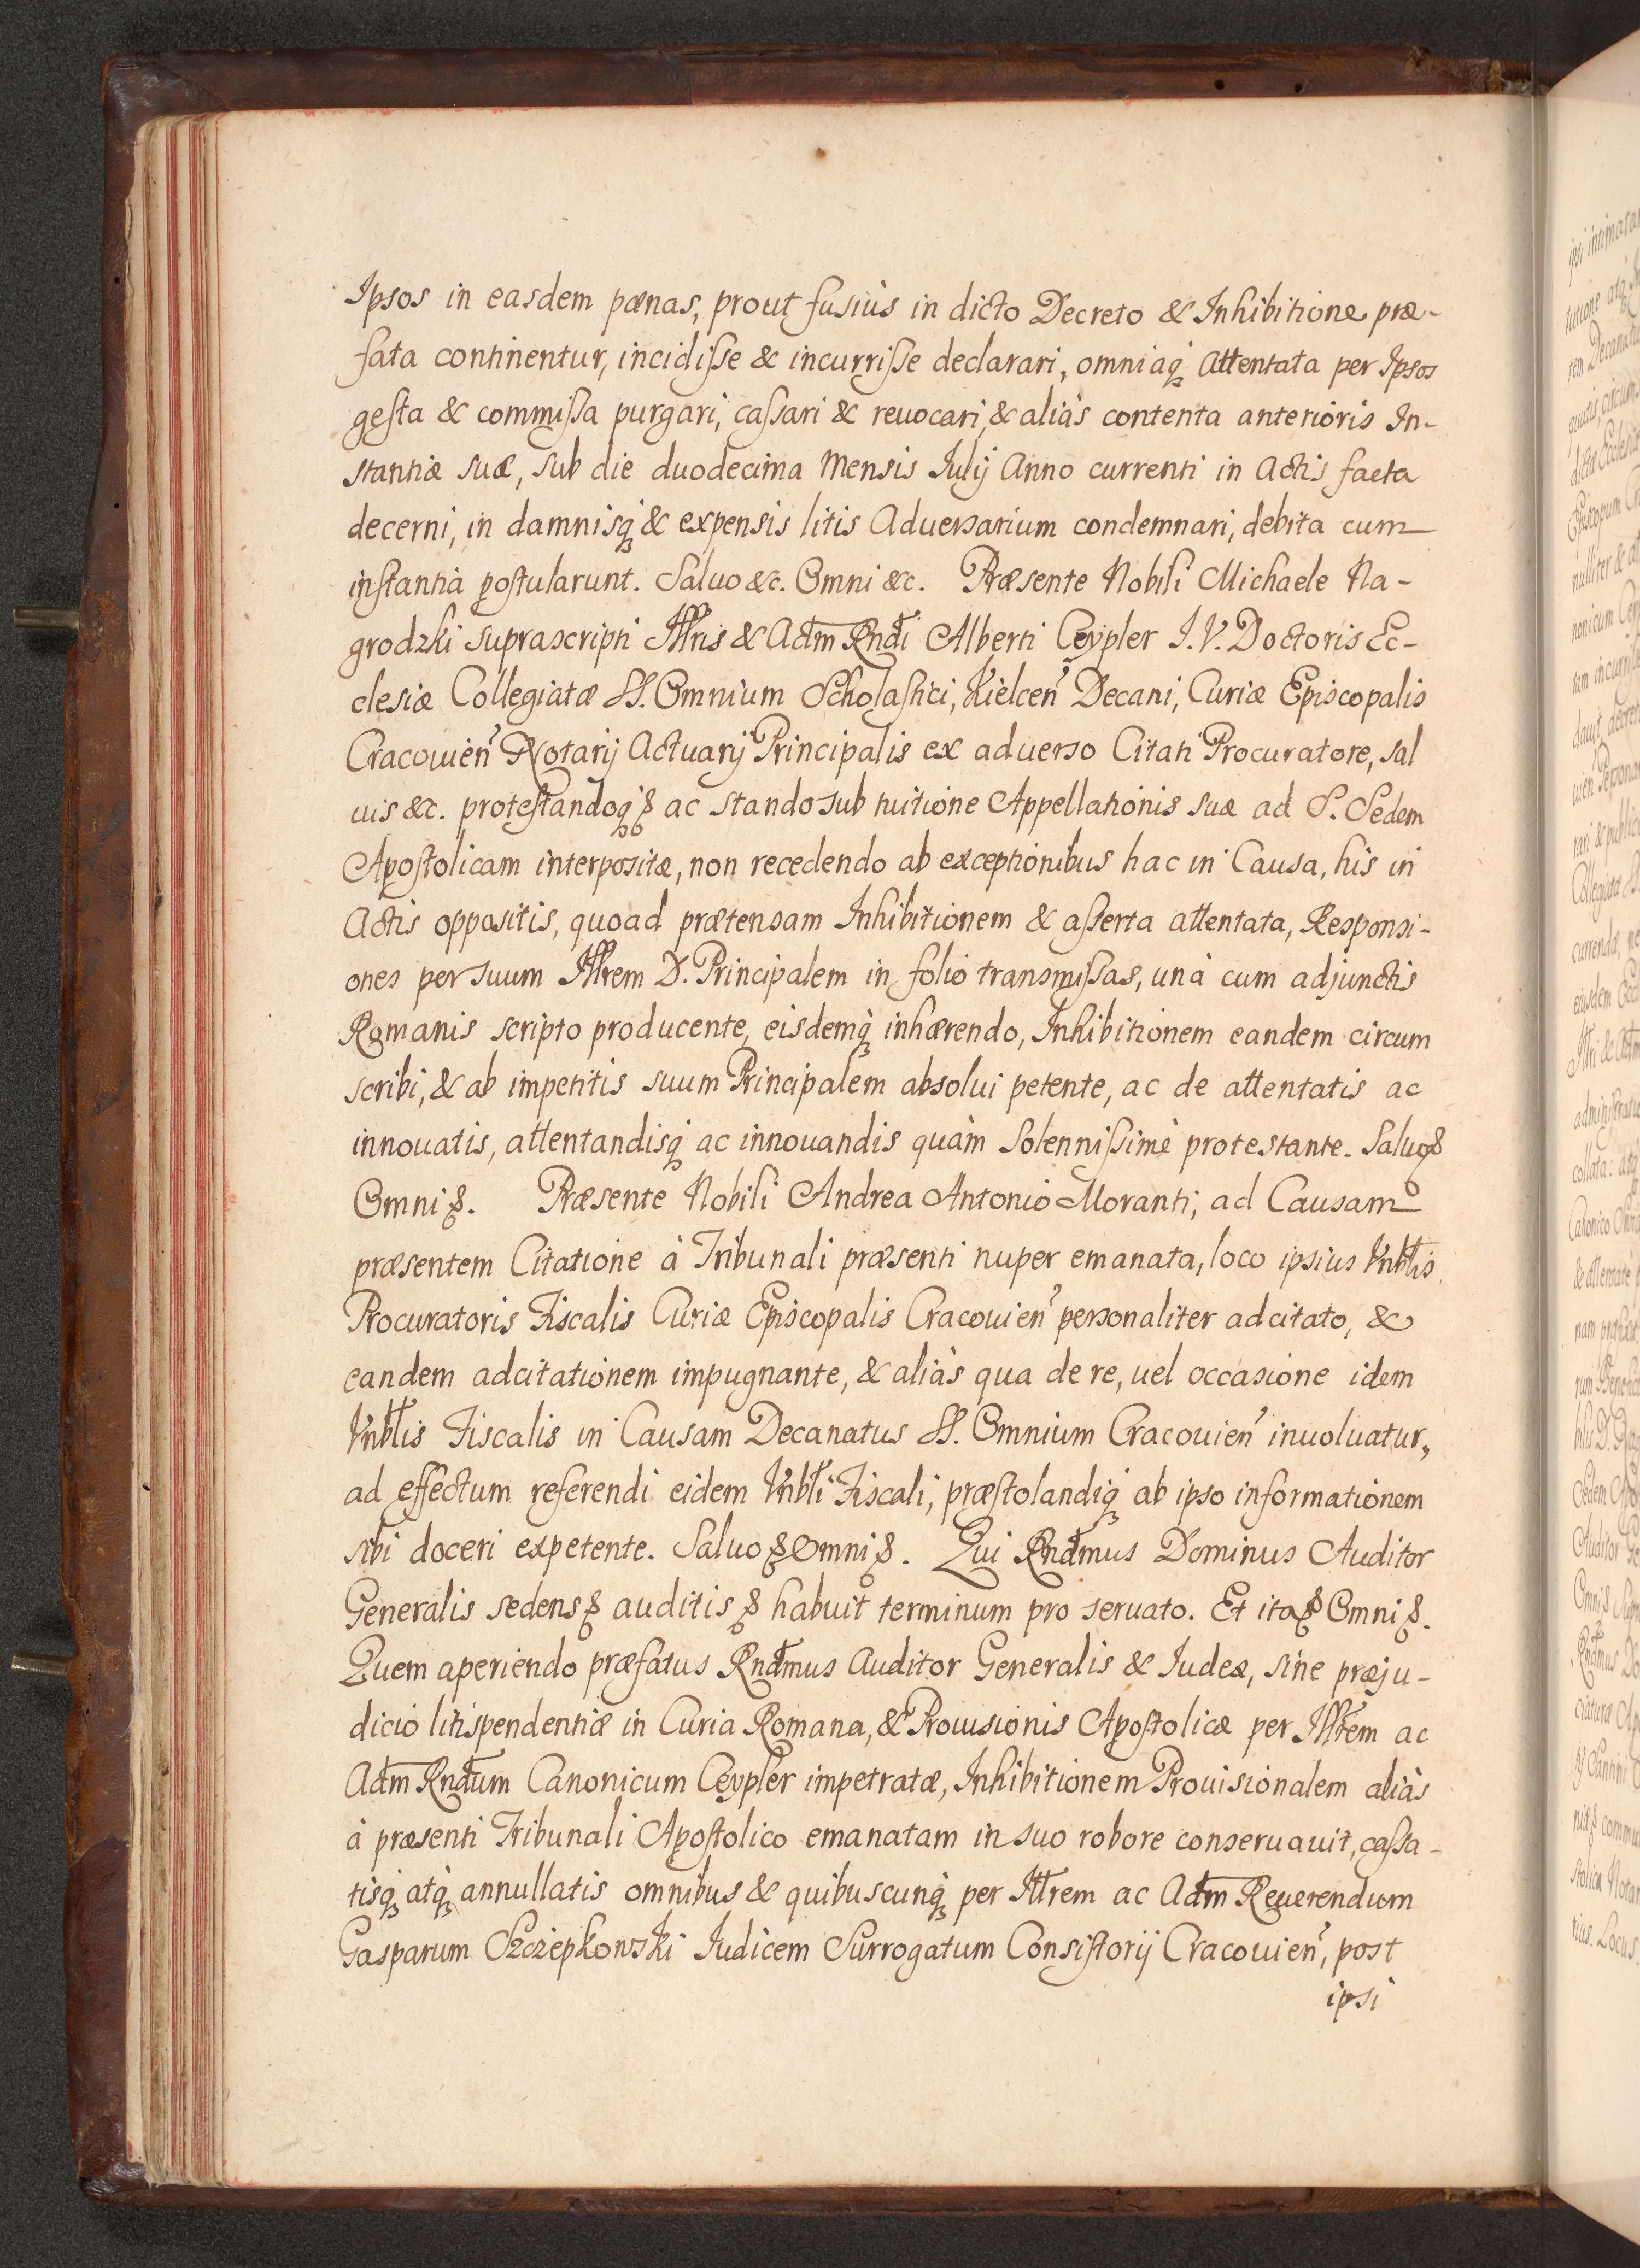 Ipsos in easdem pænas, prout fusiùs in dicto Decreto & Inhibitione præ-
fata continentur, incidisse & incurrisse declarari, omniaq; attentata per Ipsos
gesta & commissa purgari, cassari & reuocari, & aliàs contenta anterioris In-
stantiæ suæ, sub die duodecima Mensis Iulij Anno currenti in Actis facta
decerni, in damnisq; & expensis litis Aduersarium condemnari, debita cum
instantia postularunt. Saluo &c. Omni &c. Præsente Nobili Michaele Na-
grodzki suprascripti Illris & Adm Rndi Alberti Ceypler I. V. Doctoris Ec-
clesiæ Collegiatæ SS. Omnium Scholastici, Kielcen̄ Decani, Curiæ Episcopalis
Cracouien̄ Notarij Actuarij Principalis ex aduerso Citati Procuratore, sal
uis &c. protestandoq; & ac stando sub tuitione Appellationis suæ ad S. Sedem
Apostolicam interpositæ, non recedendo ab exceptionibus hac in Causa, his in
Actis oppositis, quoad prætensam Inhibitionem & asserta attentata, Responsi-
ones per suum Illrem D. Principalem in folio transmissas, unà cum adjunctis
Romanis scripto producente, eisdemq; inhærendo, Inhibitionem eandem circum
scribi, & ab impetitis suum Principalem absolui petente, ac de attentatis ac
innouatis, attentandisq; ac innouandis quàm solennissimè protestante. Saluo &
Omni &. Præsente Nobili Andrea Antonio Moranti, ad Causam
præsentem Citatione à Tribunali præsenti nuper emanata, loco ipsius Vnblis
Procuratoris Fiscalis Curiæ Episcopalis Cracouien̄ personaliter adcitato, &
eandem adcitationem impugnante, & aliàs qua de re, uel occasione idem
Vnblis Fiscalis in Causam Decanatus SS. Omnium Cracouien̄ inuoluatur,
ad effectum referendi eidem Vnbli Fiscali, præstolandiq; ab ipso informationem
sibi doceri expetente. Saluo & Omni &. Qui Rndmus Dominus Auditor
Generalis sedens & auditis & habuit terminum pro seruato. Et ita & Omni &.
Quem aperiendo præfatus Rndmus Auditor Generalis & Iudex, sine præju-
dicio litispendentiæ in Curia Romana, & Prouisionis Apostolicæ per Illrem ac
Adm Rndum Canonicum Ceypler impetratæ, Inhibitionem Prouisionalem aliàs
à præsenti Tribunali Apostolico emanatam in suo robore conseruauit, cassa-
tisq; atq; annullatis omnibus & quibuscunq; per Illrem ac Adm Reuerendum
Gasparum Szczepkowski Iudicem Surrogatum Consistorij Cracouien̄, post
ipsi